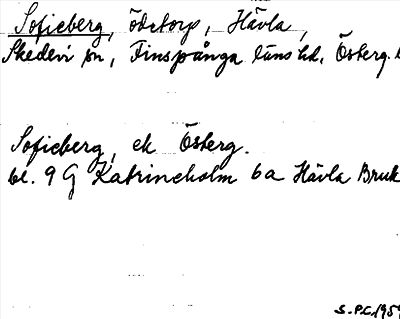 Sofieberg, ödetorp, Hävla,
Skedevi sn, Finspånga läns hd, Österg.
Sofieberg, ek Österg.
bl. 9 G Katrineholm 6a Hävla Bruk
S.P.C. 1959